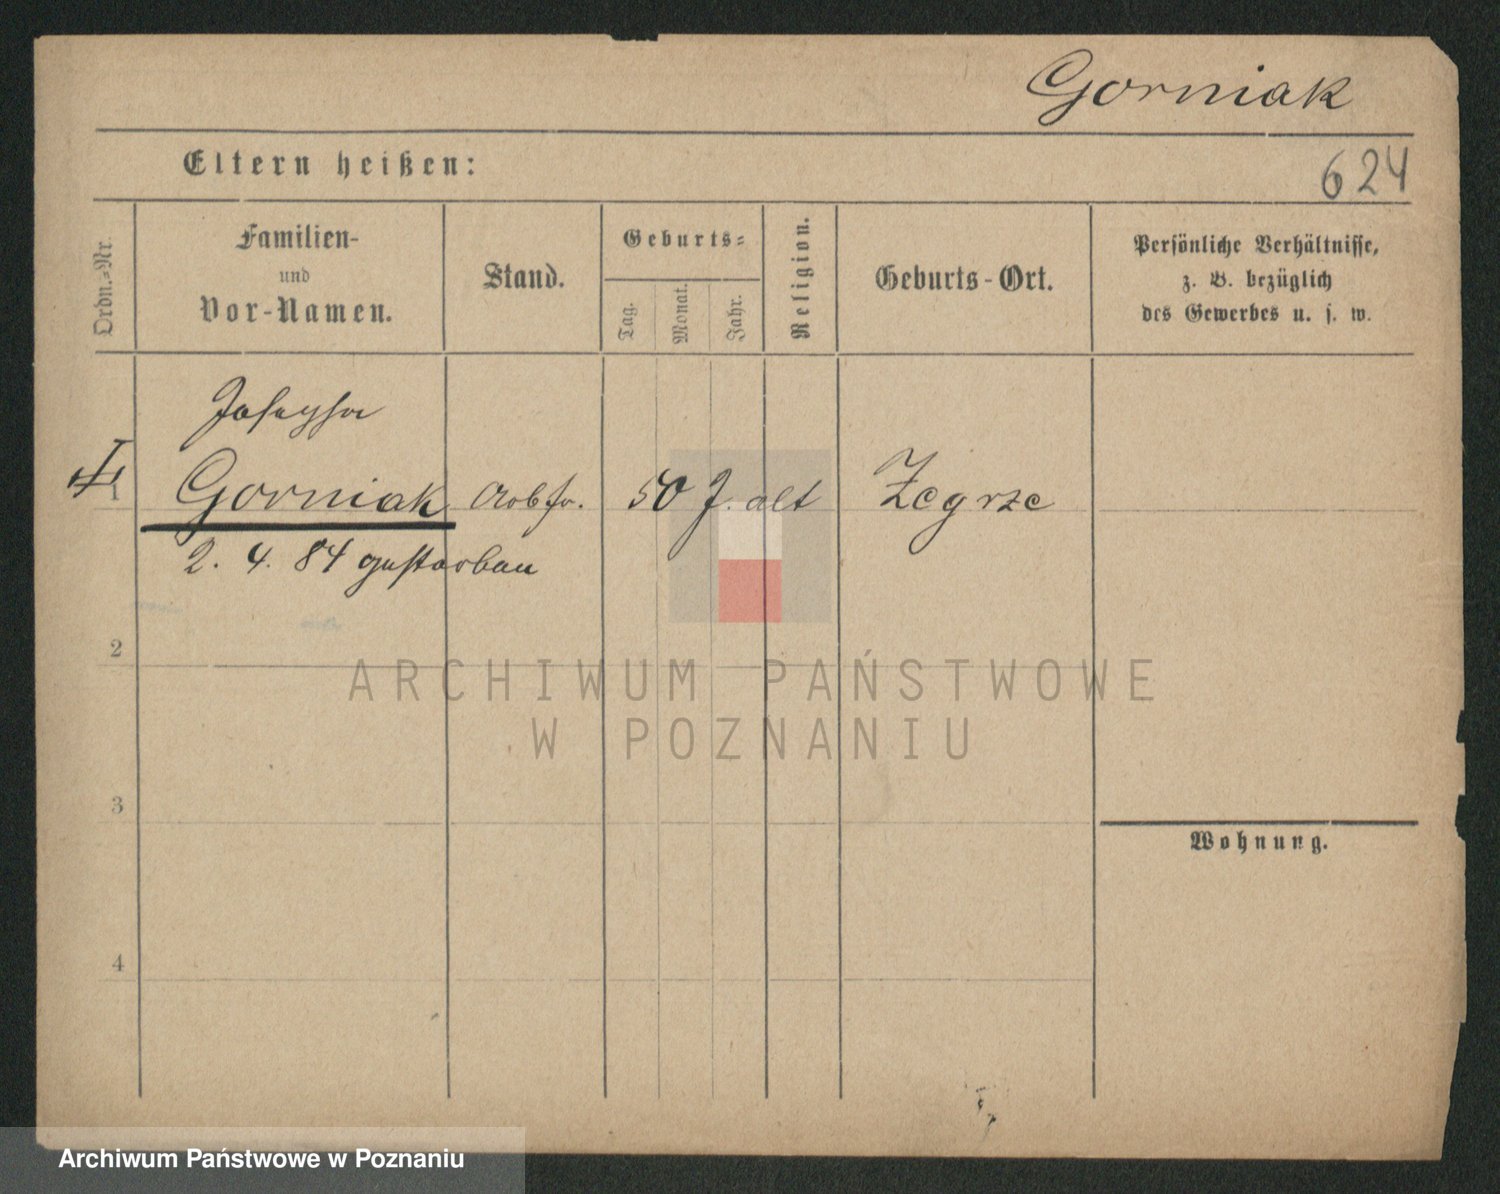 Gorniak
Eltern heißen:
624
Ordn.-Nr.
Familien-
und
Vor-Namen.
Stand.
Geburts-
Tag.
Monat.
Jahr.
Religion.
Geburts-Ort.
Persönliche Verhältnisse,
z. B. bezüglich
des Gewerbes u. s. w.
Josepha
1 Gorniak Arbfr. 50 J. alt Zegrze
2. 4. 84 gestorben
2
ARCHIWUM PAŃSTWOWE
W POZNANIU
3
Wohnung.
4
Archiwum Państwowe w Poznaniu